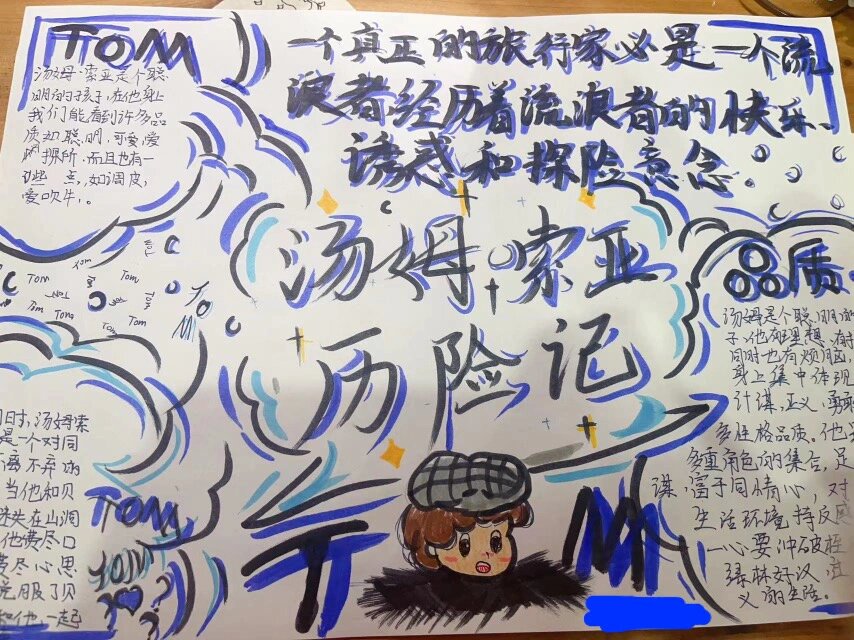 TOM
汤姆·索亚是个聪
明的孩子,在他身上
我们能看到许多品
质如聪明,可爱,爱
而且也有一
些 点,如调皮,
爱吹牛。
一个真正的旅行家必是一个流
浪者经历着流浪者的快乐、
诱惑和探险意念
汤姆 索亚
历险记
Tom
Tom
Tom
Tom
Tom
Tom
Tom
Tom
TOM
品质
汤姆是个聪明的
子,他有理想,有
同时也有烦恼,
身上集中体现
计谋,正义,勇敢
多性格品质,他是
多重角色的集合,足
谋,富于同情心,对
生活环境持反感
一心要冲破
绿林好汉
义的生活。
同时,汤姆索
是一个对同
离不弃的
当他和贝
迷失在山洞
他费尽口
费尽心思
克服了贝
和他一起
TOM
TOM
T
M